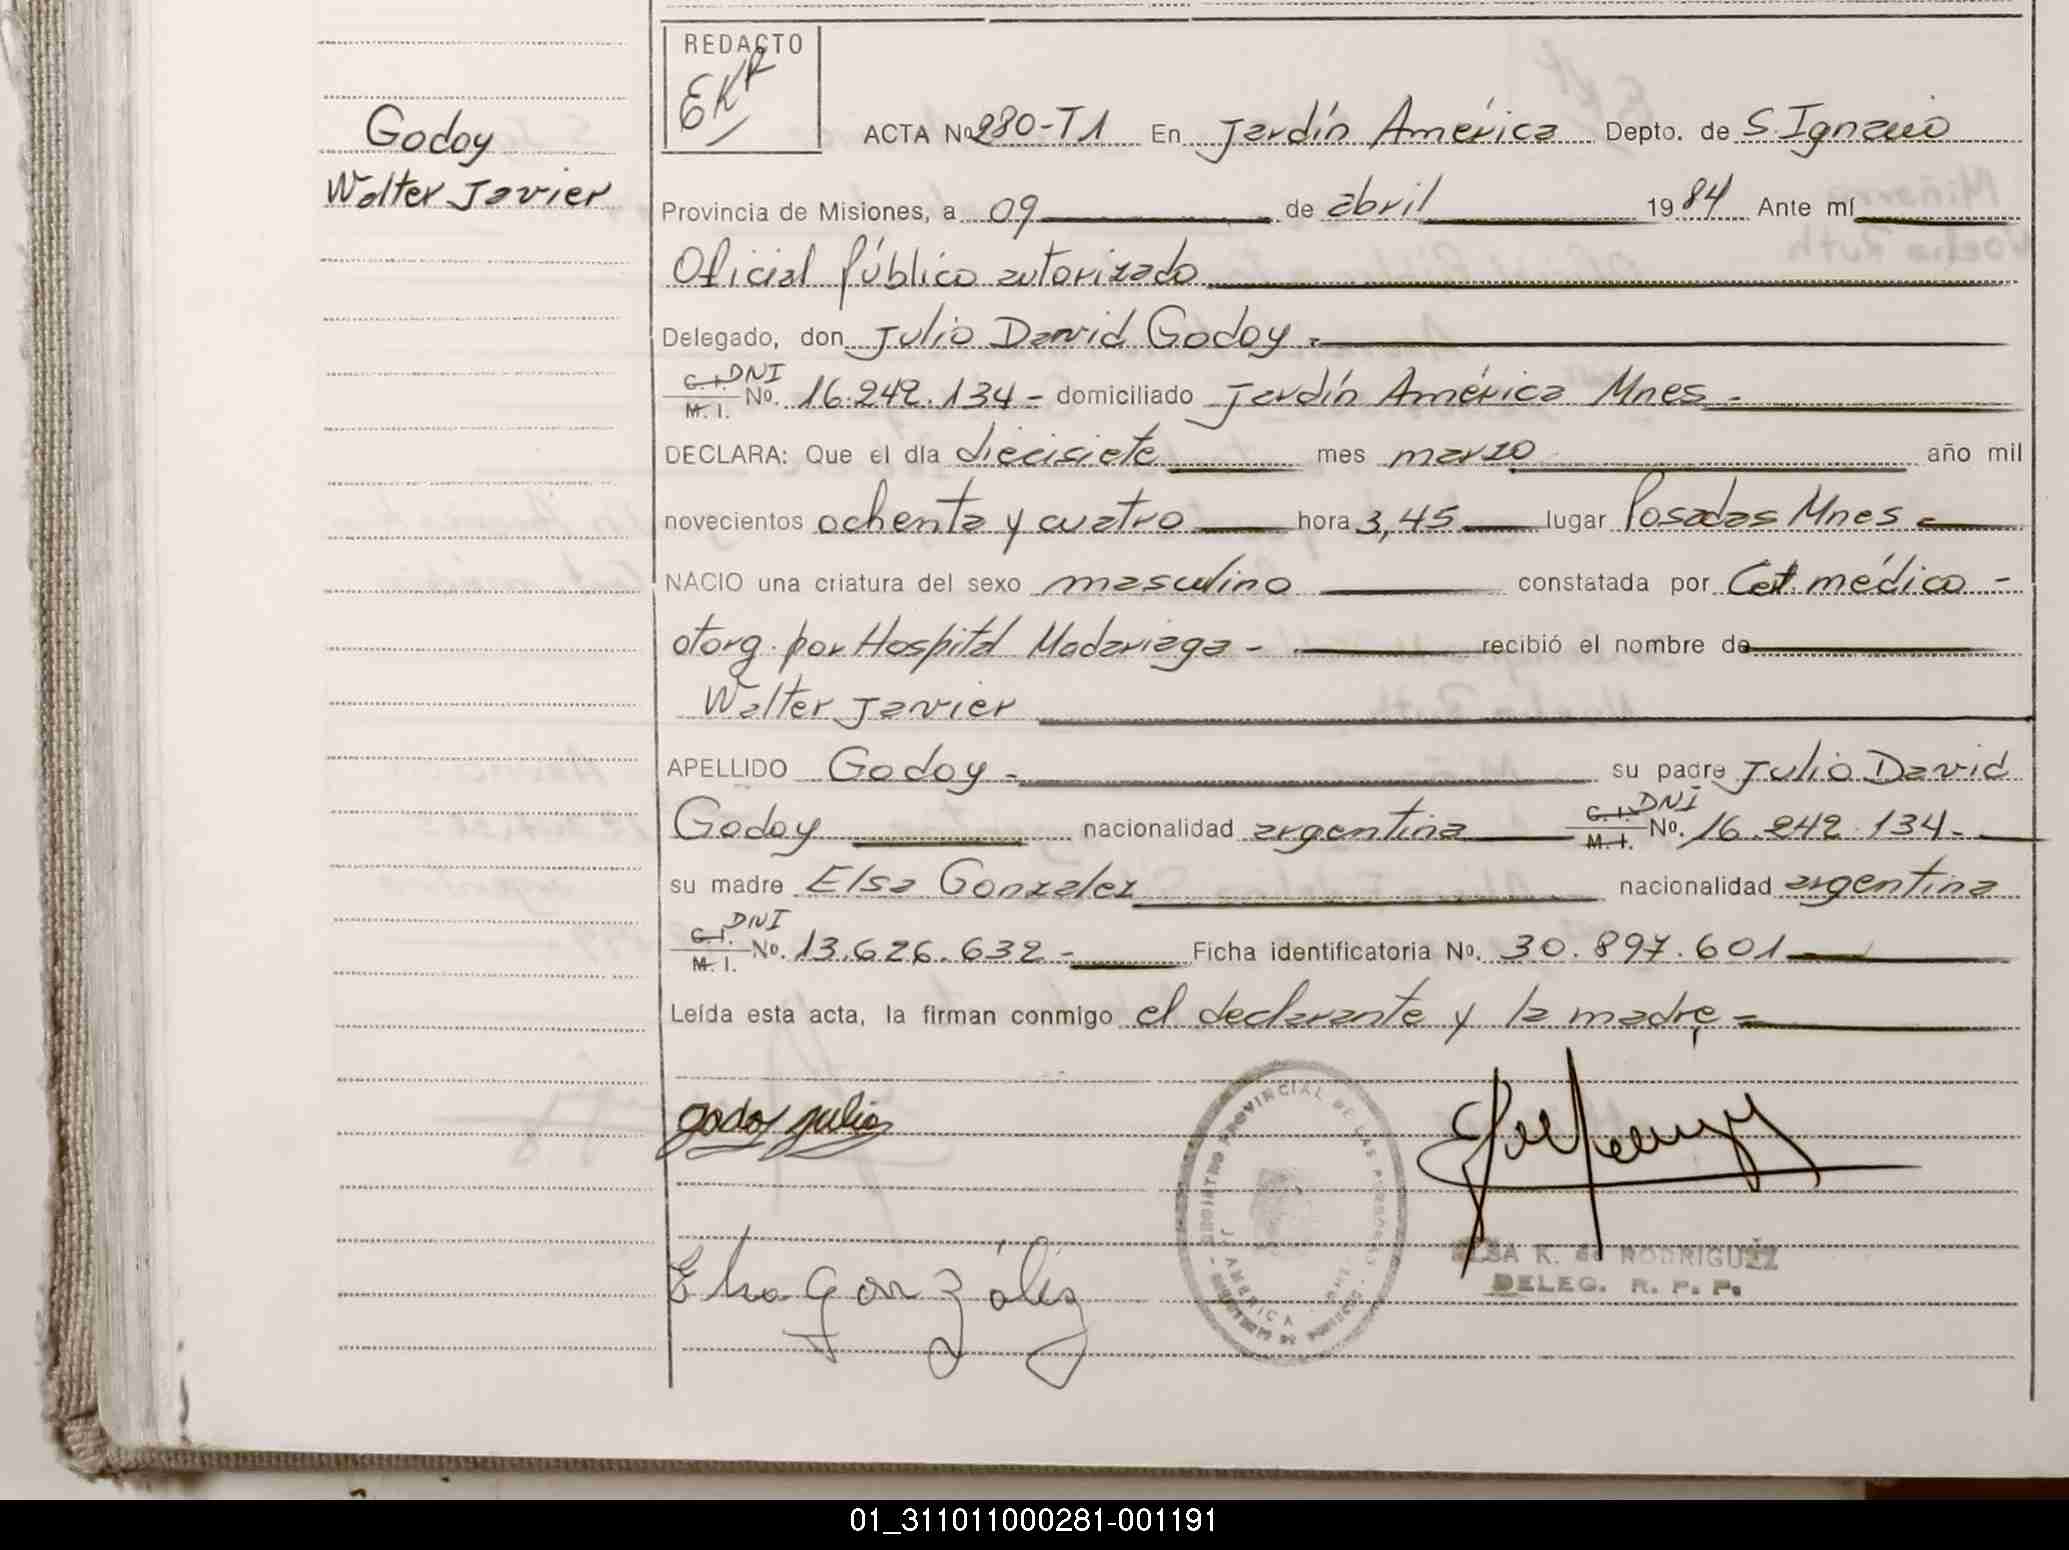 REDACTO
EKR
Godoy
Walter Javier
ACTA Nº 280-T1 En Jardín América Depto. de S. Ignacio
Provincia de Misiones, a 09 de abril 1984 Ante mí
Oficial Público autorizado
Delegado, don Julio David Godoy.
C. I. DNI
M. I. No. 16.242.134- domiciliado Jardín América Mnes-
DECLARA: Que el día diecisiete mes marzo año mil
novecientos ochenta y cuatro hora 3,45 lugar Posadas Mnes-
NACIO una criatura del sexo masculino constatada por Cert. médico-
otorg. por Hospital Madariaga- recibió el nombre de
Walter Javier
APELLIDO Godoy- su padre Julio David
C. I. DNI
Godoy nacionalidad argentina M. I. No. 16.242.134-
su madre Elsa Gonzalez nacionalidad argentina
C. I. DNI
M. I. No. 13.626.632- Ficha identificatoria No. 30.897.601
Leída esta acta, la firman conmigo el declarante y la madre-
godoy julio
PROVINCIAL DE LAS PERSONAS
J. AMERICA
Elsa González
ELSA K. de RODRIGUEZ
DELEG. R. P. P.
01_311011000281-001191